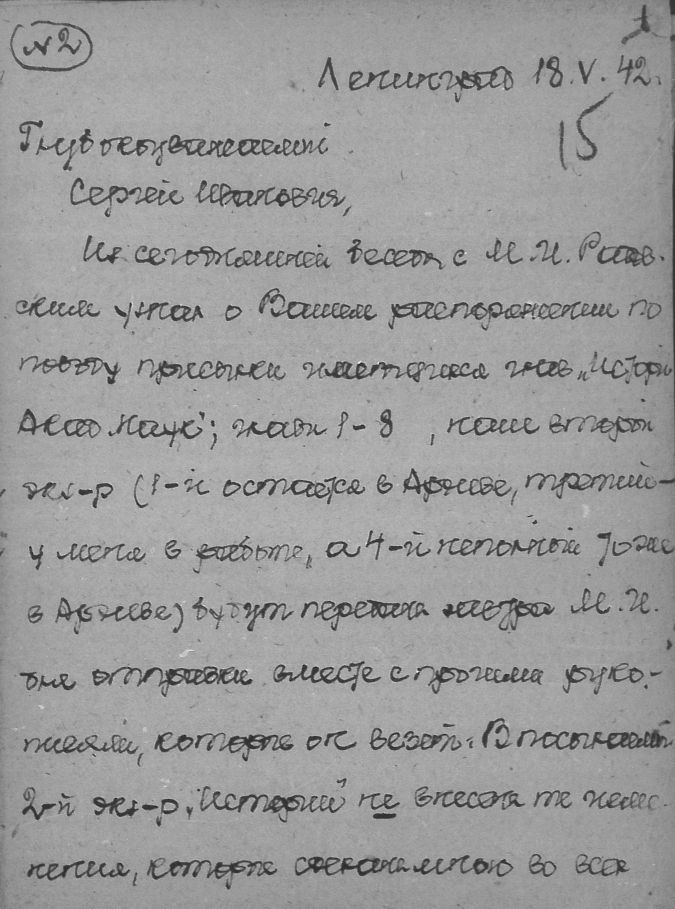 №2
1
Ленинград 18.V.42.
15
Глубокоуважаемый
Сергей Иванович,
Из сегодняшней беседы с М. И. Радов-
ским узнал о Вашем распоряжении по
поводу присылки имеющихся глав „Истории
Акад Наук"; главы 1-8, наш второй
экз-р (1-й остается в Архиве, третий-
у меня в работе, а 4-й неполный тоже
в Архиве) будут переданы М. И.
для отправки вместе с прочими руко-
писями, которые он везет. В посылаемый
2-й экз-р „Истории" не внесены те изме-
нения, которые сделаны мною во всех